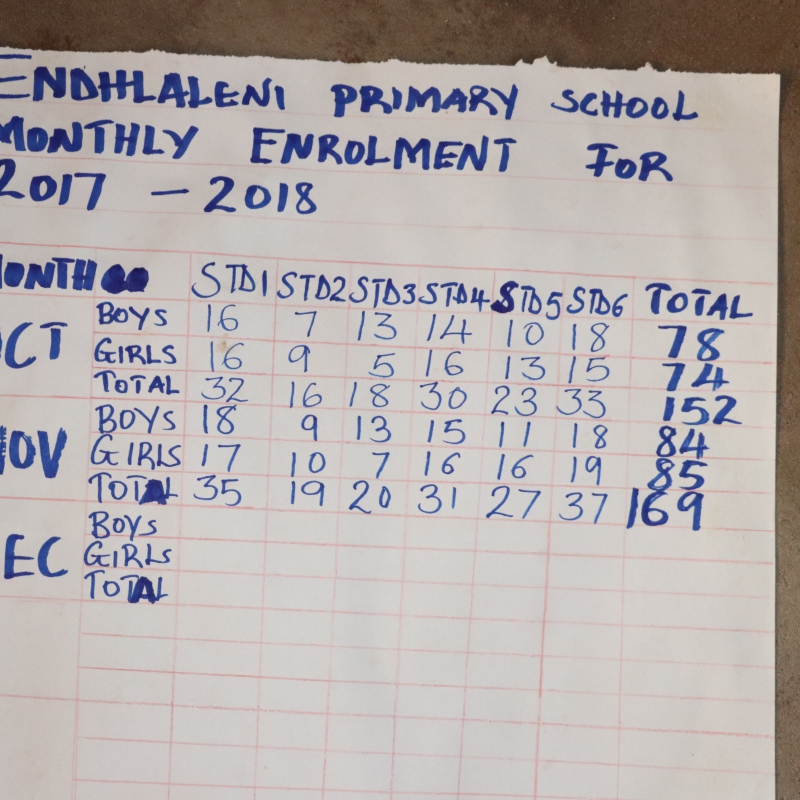 ENDHLALENI PRIMARY SCHOOL
MONTHLY ENROLMENT FOR
2017 – 2018
MONTH STD1 STD2 STD3 STD4 STD5 STD6 TOTAL
OCT BOYS 16 7 13 14 10 18 78
GIRLS 16 9 5 16 13 15 74
TOTAL 32 16 18 30 23 33 152
NOV BOYS 18 9 13 15 11 18 84
GIRLS 17 10 7 16 16 19 85
TOTAL 35 19 20 31 27 37 169
EC BOYS
GIRLS
TOTAL